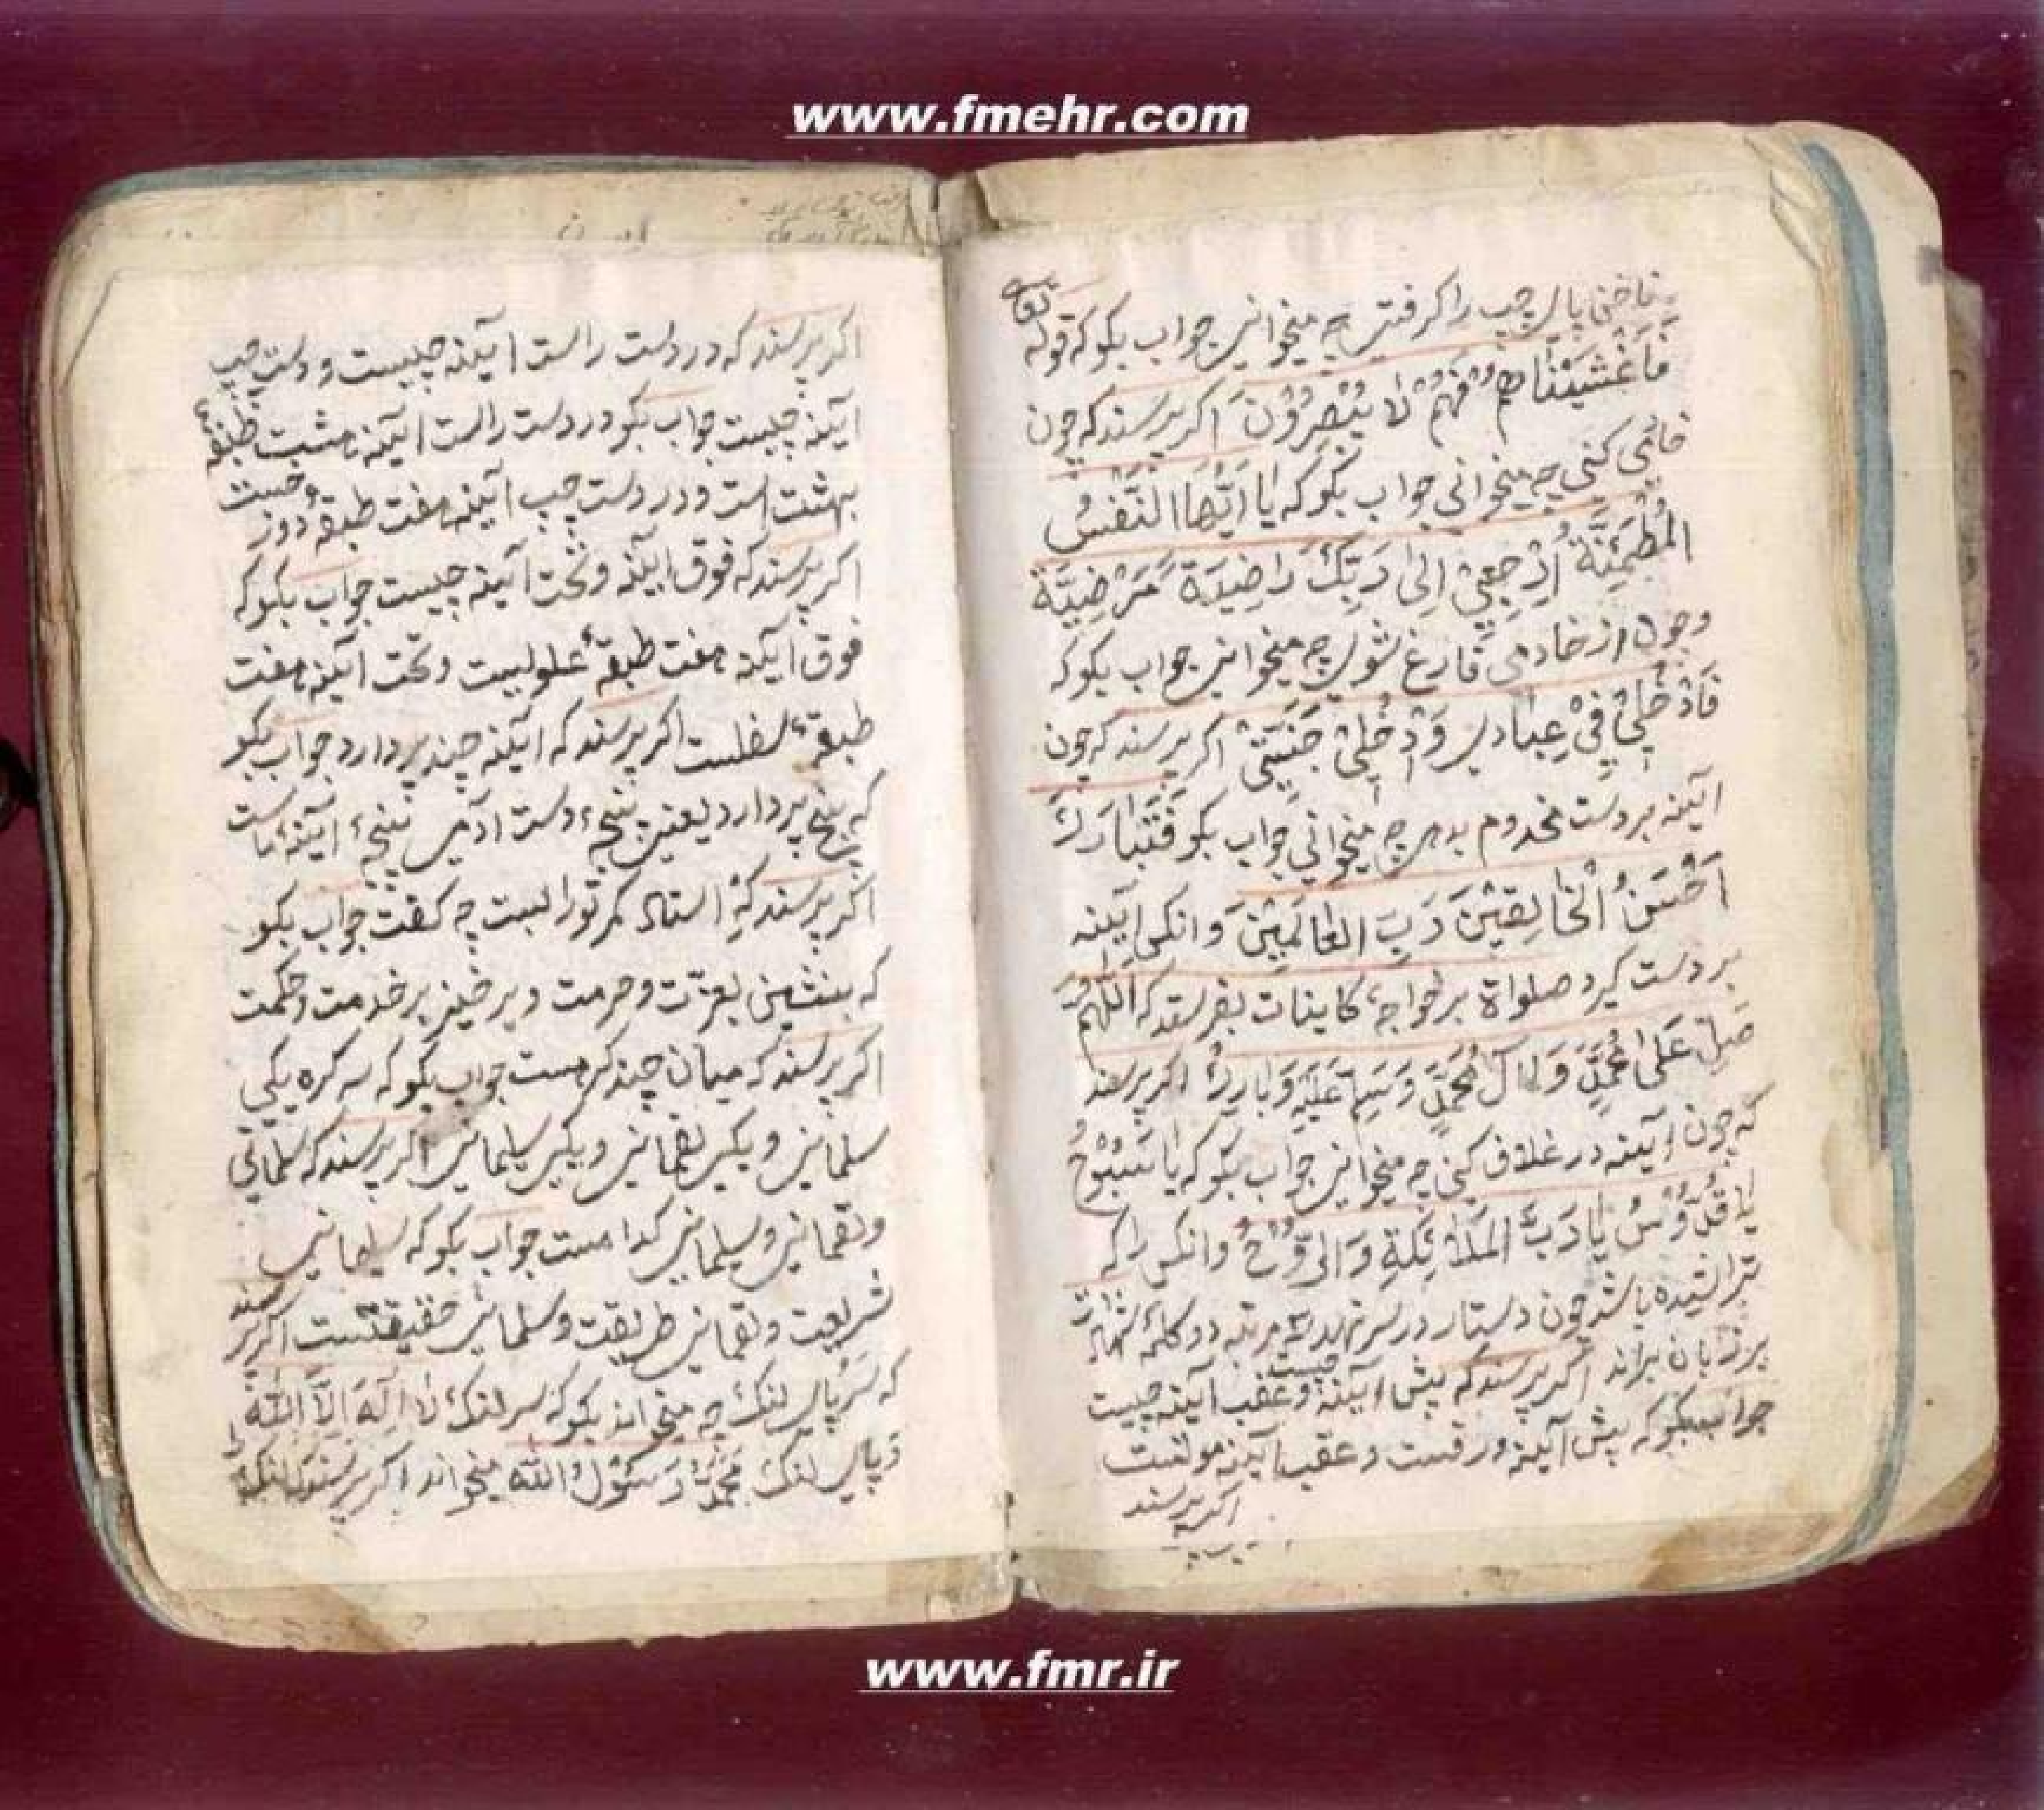 www.fmehr.com
ناخن پای چپ را کرفتی چه میخوانی جواب بکو که قوله تعا
فَاَغْشَیْنٰاهُمْ فَهُمْ لاٰ یُبْصِرُوْنَ اکر پرسند که چون
قائمی کنی چه میخوانی جواب بکو که یٰا اَیَّتُهَا النَّفْسُ
الْمُطْمَئِنَّةُ اِرْجِعِیْ اِلیٰ رَبِّکَ رٰاضِیَةً مَرْضِیَّةً
و چون از خادمی فارغ شوی چه میخوانی جواب بکو که
فَادْخُلِیْ فِیْ عِبٰادِی وَدْخُلِیْ جَنَّتِیْ اکر پرسند که چون
آیینه بر دست مخدوم بدهی چه میخوانی جواب بکو فَتَبٰارَکَ
اَحْسَنُ الْخٰالِقِیْنَ رَبِّ الْعٰالَمِیْنَ وانکس آیینه
بر دست کیرد صلواة بر خواجهٔ کاینات بفرستد که اَللّهُمَّ
صَلِّ عَلیٰ مُحَمَّدٍ وَ اٰلِ مُحَمَّدٍ وَسَلِّمْ عَلَیْهِ وَبٰارِکْ اکر پرسند
که چون آیینه در غلاف کنی چه میخوانی جواب بکو که یٰا سُبُّوْحُ
یٰا قُدُّوْسُ یٰا رَبَّ الْمَلاٰئِکَةِ وَالرُّوْحُ وانکس را که
تراشیده باشد چون دستار در سر نهد سه مرتبه دو کلمهٔ شهادت
بر زبان براند اکر پرسند که پیش آیینه چیست و عقب آیینه چیست
جواب بکو که پیش آیینه ورقست و عقب آیینه مولتست
اکر پرسند
اکر پرسند که در دست راست آیینه چیست و دست چپ
آیینه چیست جواب بکو در دست راست آیینه هشت طبقهٔ
بهشت است و در دست چپ آیینه هفت طبقهٔ دوزخست
اکر پرسند که فوق آیینه و تحت آیینه چیست جواب بکو که
فوق آیینه هفت طبقهٔ علولیست و تحت آیینه هفت
طبقهٔ سفلست اکر پرسند که آیینه چند پر دارد جواب بکو
که پنج پر دارد یعنی پنجهٔ دست آدمی پنجهٔ آیینهٔ ماست
اکر پرسند که استاد کمر تو را بست چه کفت جواب بکو
که بنشین بعزت و حرمت و برخیز بر خدمت و حکمت
اکر پرسند که میان چند کرهست جواب بکو که سه کره یکی
سلمانی و یکی لقمانی و یکی سلیمانی اکر پرسند که سلمانی
و لقمانی و سلیمانی کدامست جواب بکو که سلیمانی
شریعت و لقمانی طریقت و سلمانی حقیقتست اکر پرسند
که سر پای لنک چه میخواند بکو که سر لنک لاٰ اِلٰهَ اِلاَّ اللّٰه
و پای لنک مُحَمَّدٌ رَسُوْلُ اللّٰه میخواند اکر پرسند که لنک را
www.fmr.ir